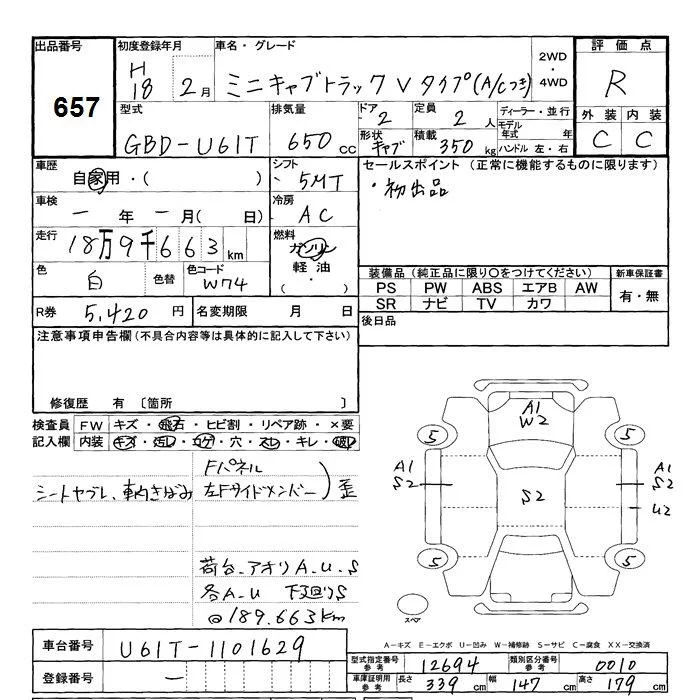 出品番号
657
初度登録年月
H
18 2月
車名・グレード
ミニキャブトラック V タイプ(A/Cつき)
2WD
・
4WD
評価点
R
外装 内装
C C
型式
GBD-U61T
排気量
650cc
ドア
2
形状
キャブ
定員
2人
積載
350kg
ディーラー・並行
モデル
年式 年
ハンドル 左・右
車歴
自家用・( )
シフト
5MT
セールスポイント (正常に機能するものに限ります)
・初出品
車検
一年 一月( 日)
冷房
AC
走行
18万9千663km
燃料
ガソリン
軽油
( ・ )
色
白
色替
色コード
W74
装備品(純正品に限り〇をつけてください)
PS PW ABS エアB AW
SR ナビ TV カワ
新車保証書
有・無
R券 5,420円
名変期限 月 日
後日品
注意事項申告欄(不具合内容等は具体的に記入して下さい)
修復歴 有 〔箇所 〕
検査員
記入欄
FW キズ・飛石・ヒビ割・リペア跡・×要
内装 キズ・汚レ・コゲ・穴・スレ・キレ・破レ
シートヤブレ、車内きばみ
Fパネル
左Fサイドメンバー) 歪
荷台、アオリA.U.S
各A-U 下廻りS
@189.663Km
A1
W2
5
5
A1
S2
S2
A1
S2
U2
5
5
スペア
A-キズ E-エクボ U-凹み W-補修跡 S-サビ C-腐食 XX-交換済
車台番号
U61T-1101629
登録番号
一
型式指定番号
参考
12694
類別区分番号
参考
0010
車庫証明用
参考
長さ 339cm
幅 147cm
高さ 179cm